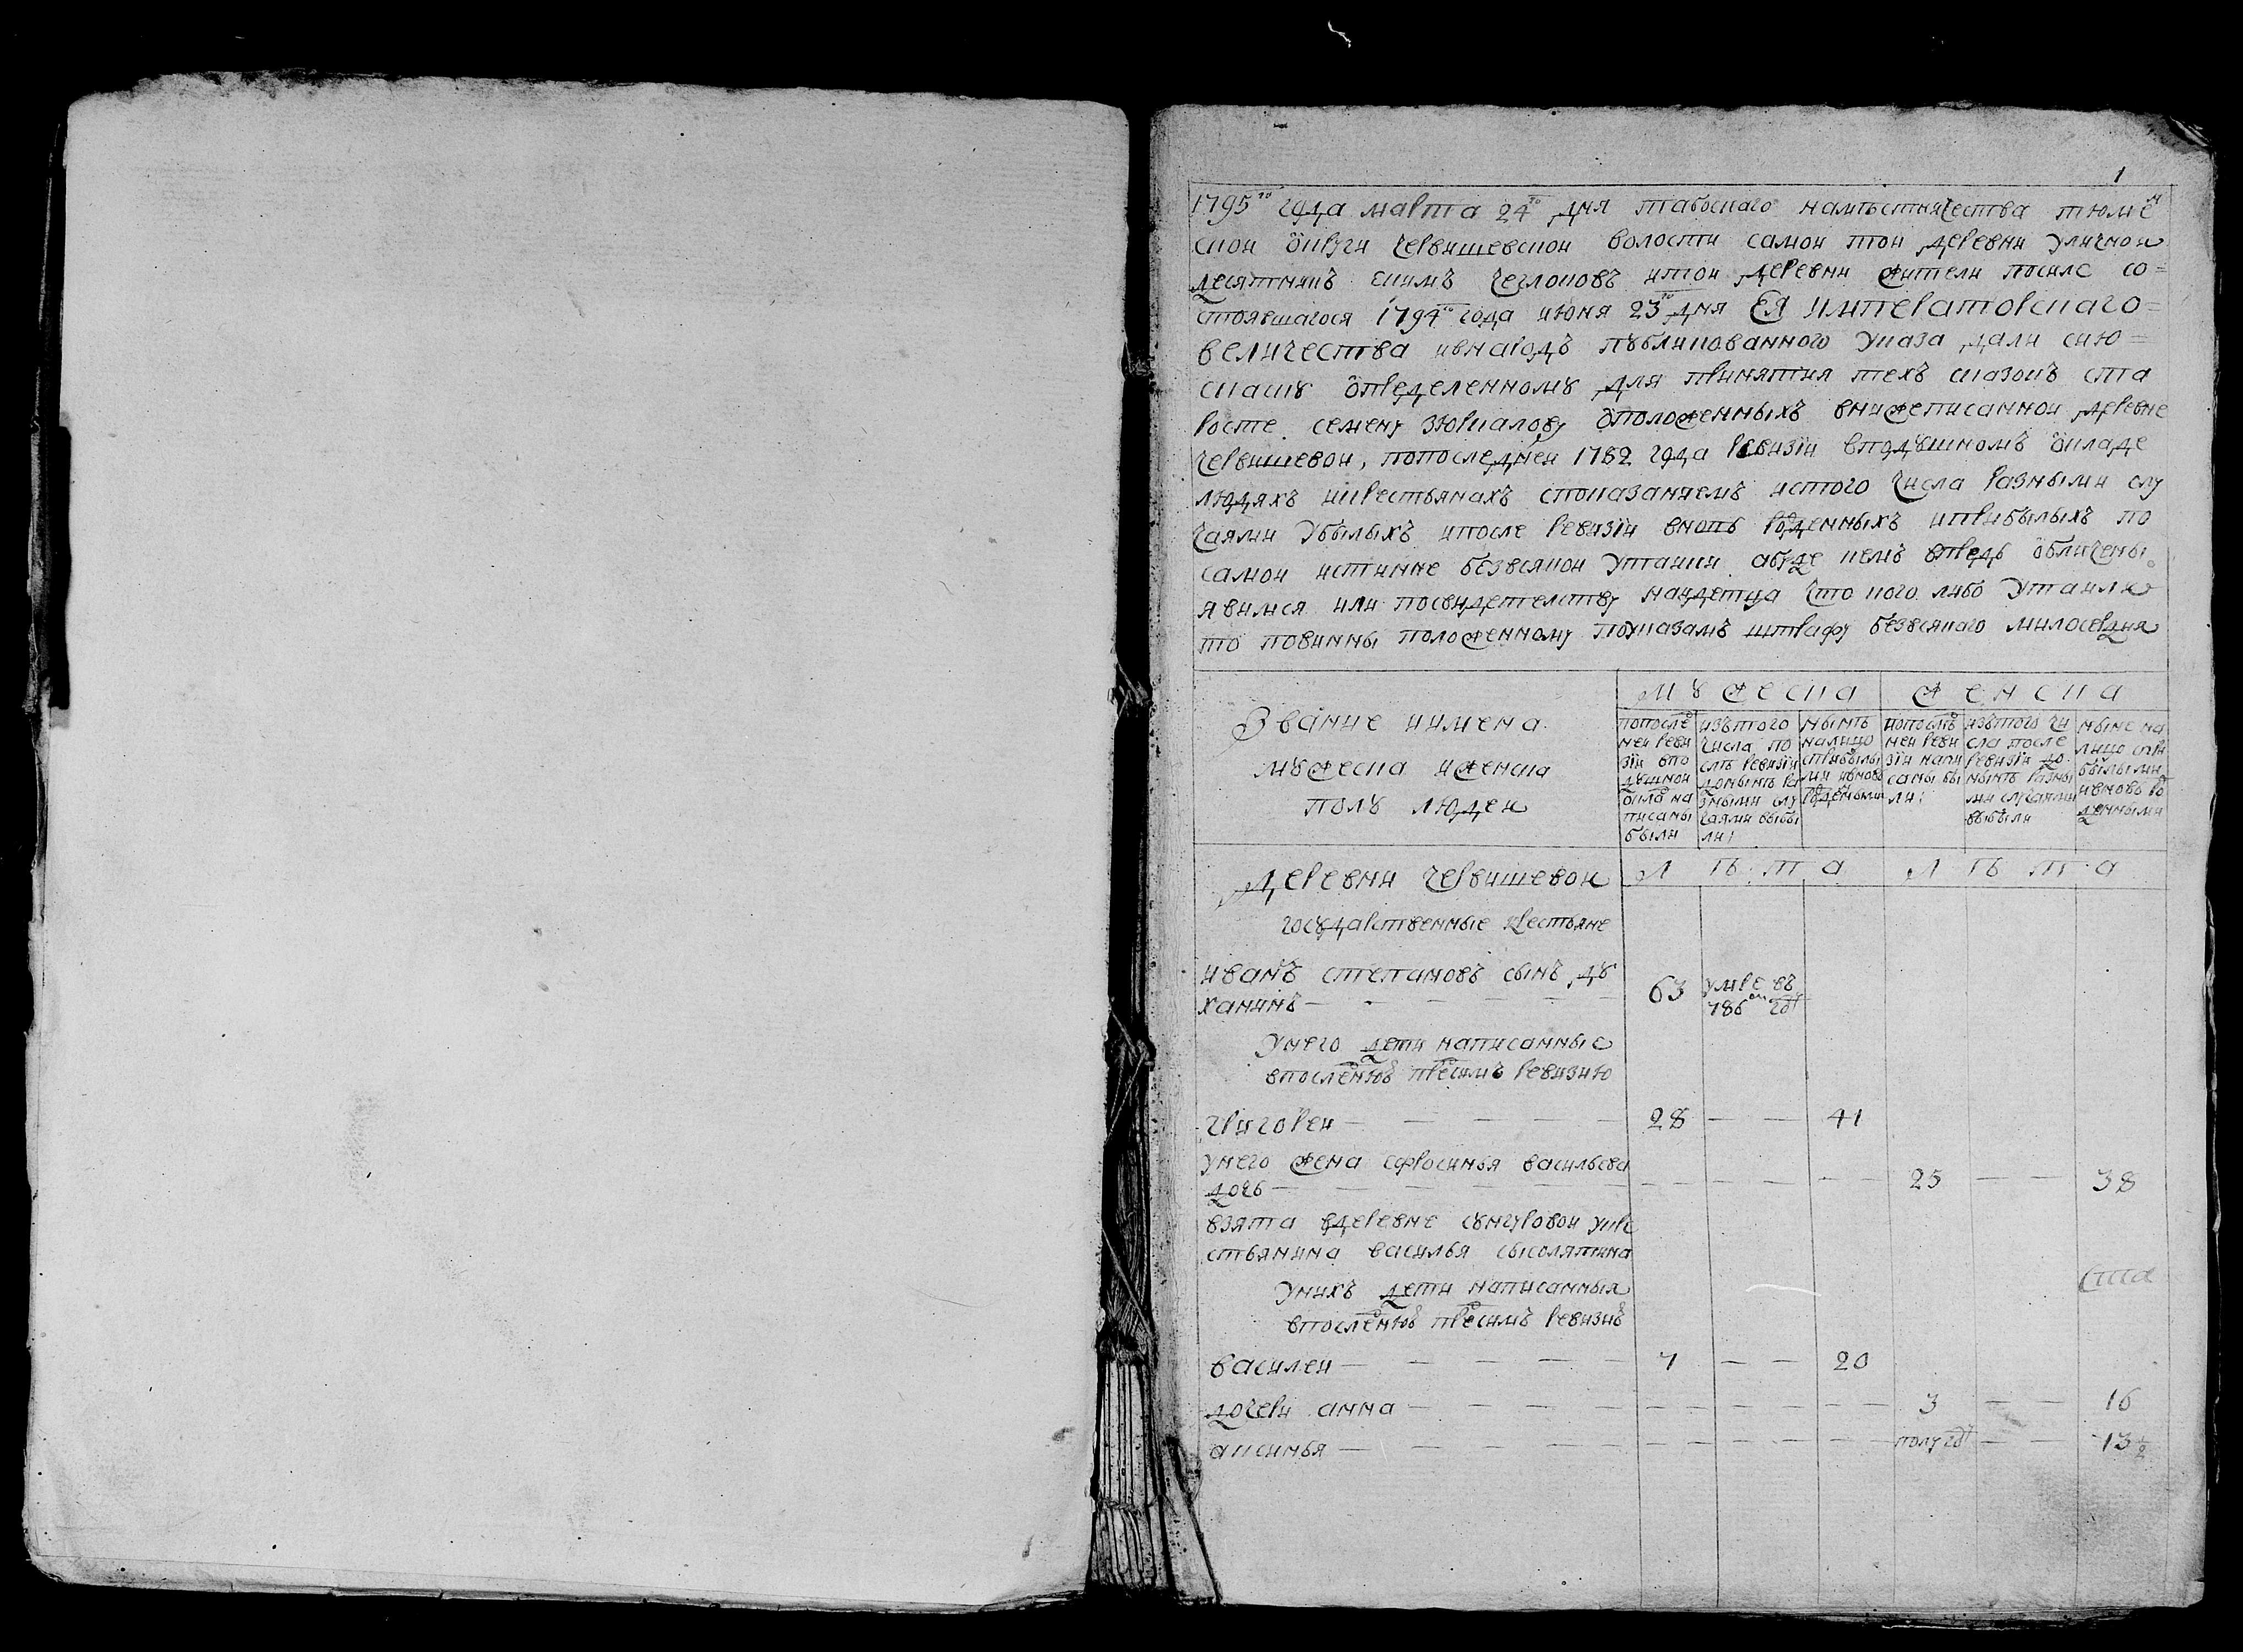 1
1795го года марта 24го дня табоскаго наместничества тюмен
скои округи червишевскои волости самои тои деревни уличнои
десятникъ екимъ чеглоковъ итои деревни жители посиле со=
стоявшагося 1794го года июня 23го дня ЕЯ императорскаго=
величества ивнародъ публикованного указа дали сию=
скаску определенному для принятия техъ сказокъ ста
росте семену зюркалову оположенныхъ внижеписаннои деревне
червишевои, попоследнеи 1782 года ревизіи вподушномъ окладе
людяхъ икрестьянахъ спохазаниемъ истого числа разными слу
чаями убылыхъ ипосле ревизіи вновь рожденныхъ иприбылыхъ по
самои истинне безвсякои утаики абуде кемъ впредь обличены
явимся или посвидетелству наидетца что кого либо утаили
то повинны положенному поуказамъ штрафу безвсякаго милосердия
Звание иимена
мужеска иженска
полу людеи
мужеска
женска
попосле
неи реви
зіи впо
душнои
окла на
писаны
были
изътого
числа по
слѣ ревизіи
донынѣ ра
зными слу
чаями выбы
ли:
нынѣ
налицо
сприбылы
ми ивново
рожденными
попослѣ
неи реви
зіи напи
саны бы
ли:
изътого чи
сла после
ревизіи до
нынѣ разны
ми случаями
выбыли
ныне на
лицо спри
былыми
ивновь ро
жденными
деревни червишевои
лѣта
лѣта
государственные крестьяне
иванъ степановъ сынъ ду
ханинъ — 63 умре въ
786ом году
унего дети написанные
впоследнюю пресимъ ревизию
григореи — 28 — — 41
унего жена ефросинья васильева
дочь — 25 — — 38
взята вдеревне сунгуровои укре
стьянина василья сысолятина
унихъ дети написанныя
впоследнюю пресимъ ревизию
василеи — 7 — — 20
дочери анна — 3 — — 16
аксинья — полугоду — — 13½